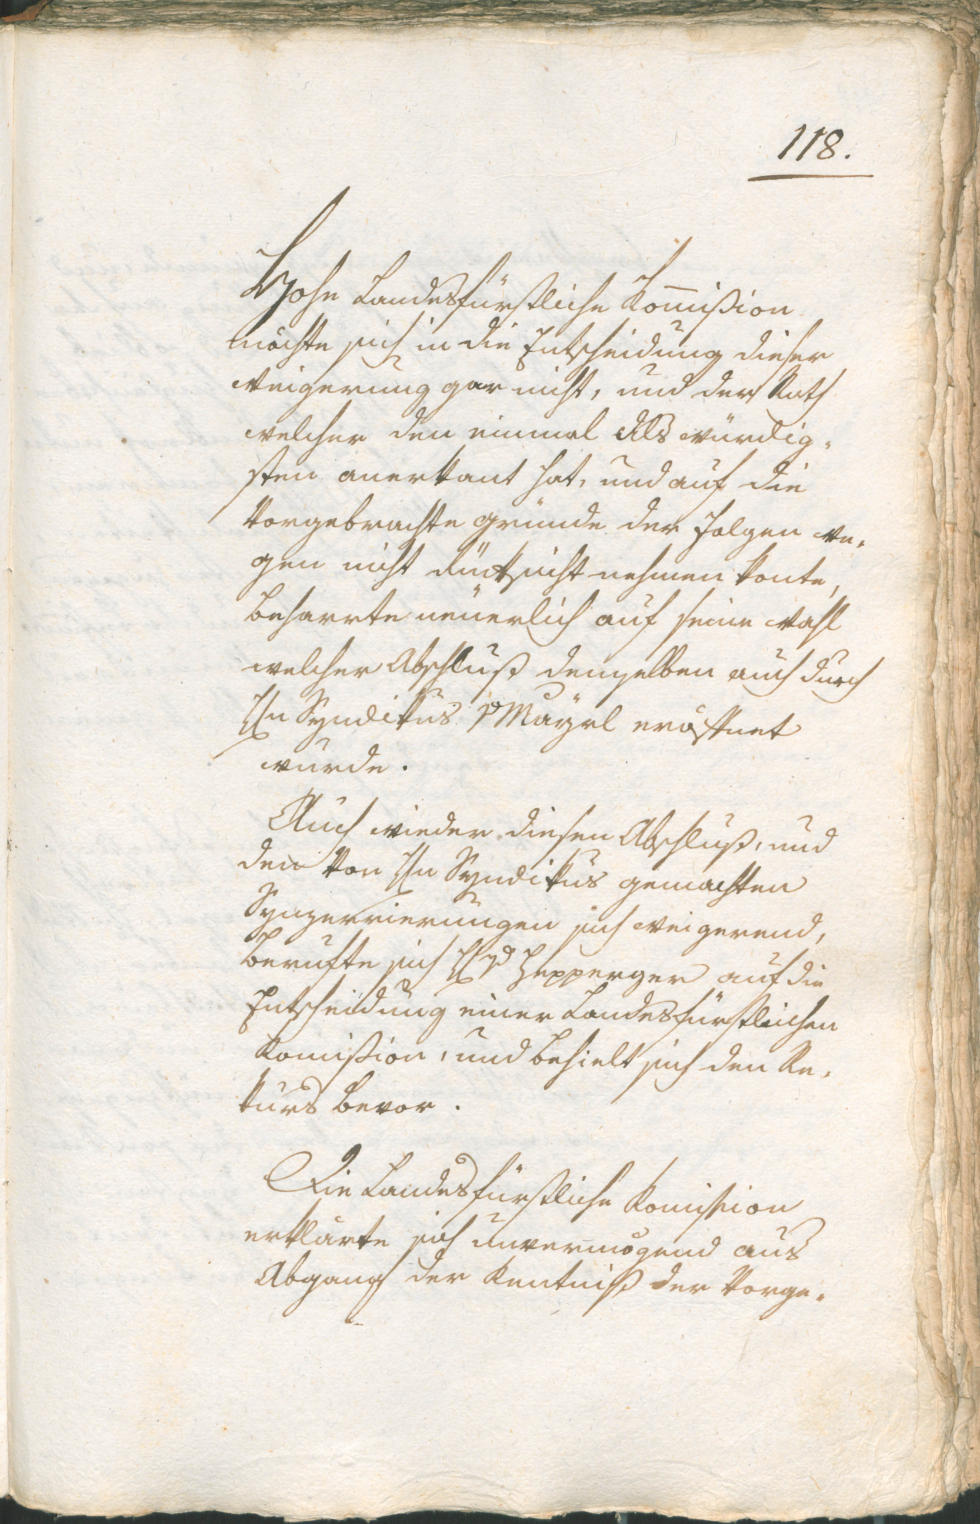 118.
Hohe Landesfürstliche Kom̅ißion
möchte sich in die Entscheidung dieser
weigerung gar nicht, und der Rath
welcher den einmal als würdig¬
sten anerkant hat, und auf die
Vorgebrachte gründe der folgen we¬
gen nicht rücksicht nehmen konte,
beharrte neüerlich auf seine wahl
welcher Abschluß demselben auch durch
Hn Syndikus v Mayrl eröffnet
wurde.
Auch wieder diesen Abschluß, und
den von Hn Syndikus gemachten
sich weigerend,
berufte sich H v Hepperger auf die
Entscheidung einer Landesfürstlichen
Komißion, und behielt sich den Re¬
kurs bevor.
Die Landesfürstliche Komission
erklärte sich unvermögend aus
Abgang der Kentniß der Vorge¬